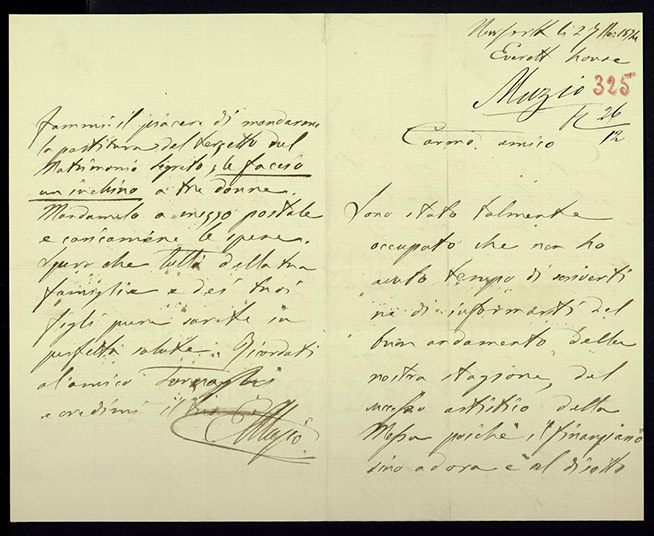 li 27
Everett house
Muzio 325
R 26/12
Carmo. amico
Sono stato talmente
occupato che non ho
avuto tempo di scriverti
ne di informarti del
buon andamento della
nostra stagione, del
successo artistico della
Messa poichè il finanziario
sino adora è al disotto
fammi il piacere di mandarmi
la partitura del terzetto del
Matrimonio Segreto, le faccio
un inchino a tre donne.
Mandamelo a mezzo postale
e caricamene le spese.
Spero che tutti della tua
famiglia e dei tuoi
figli pure sarete in
perfetta salute. Ricordati
al'amico
e credimi il tuo
EMuzio